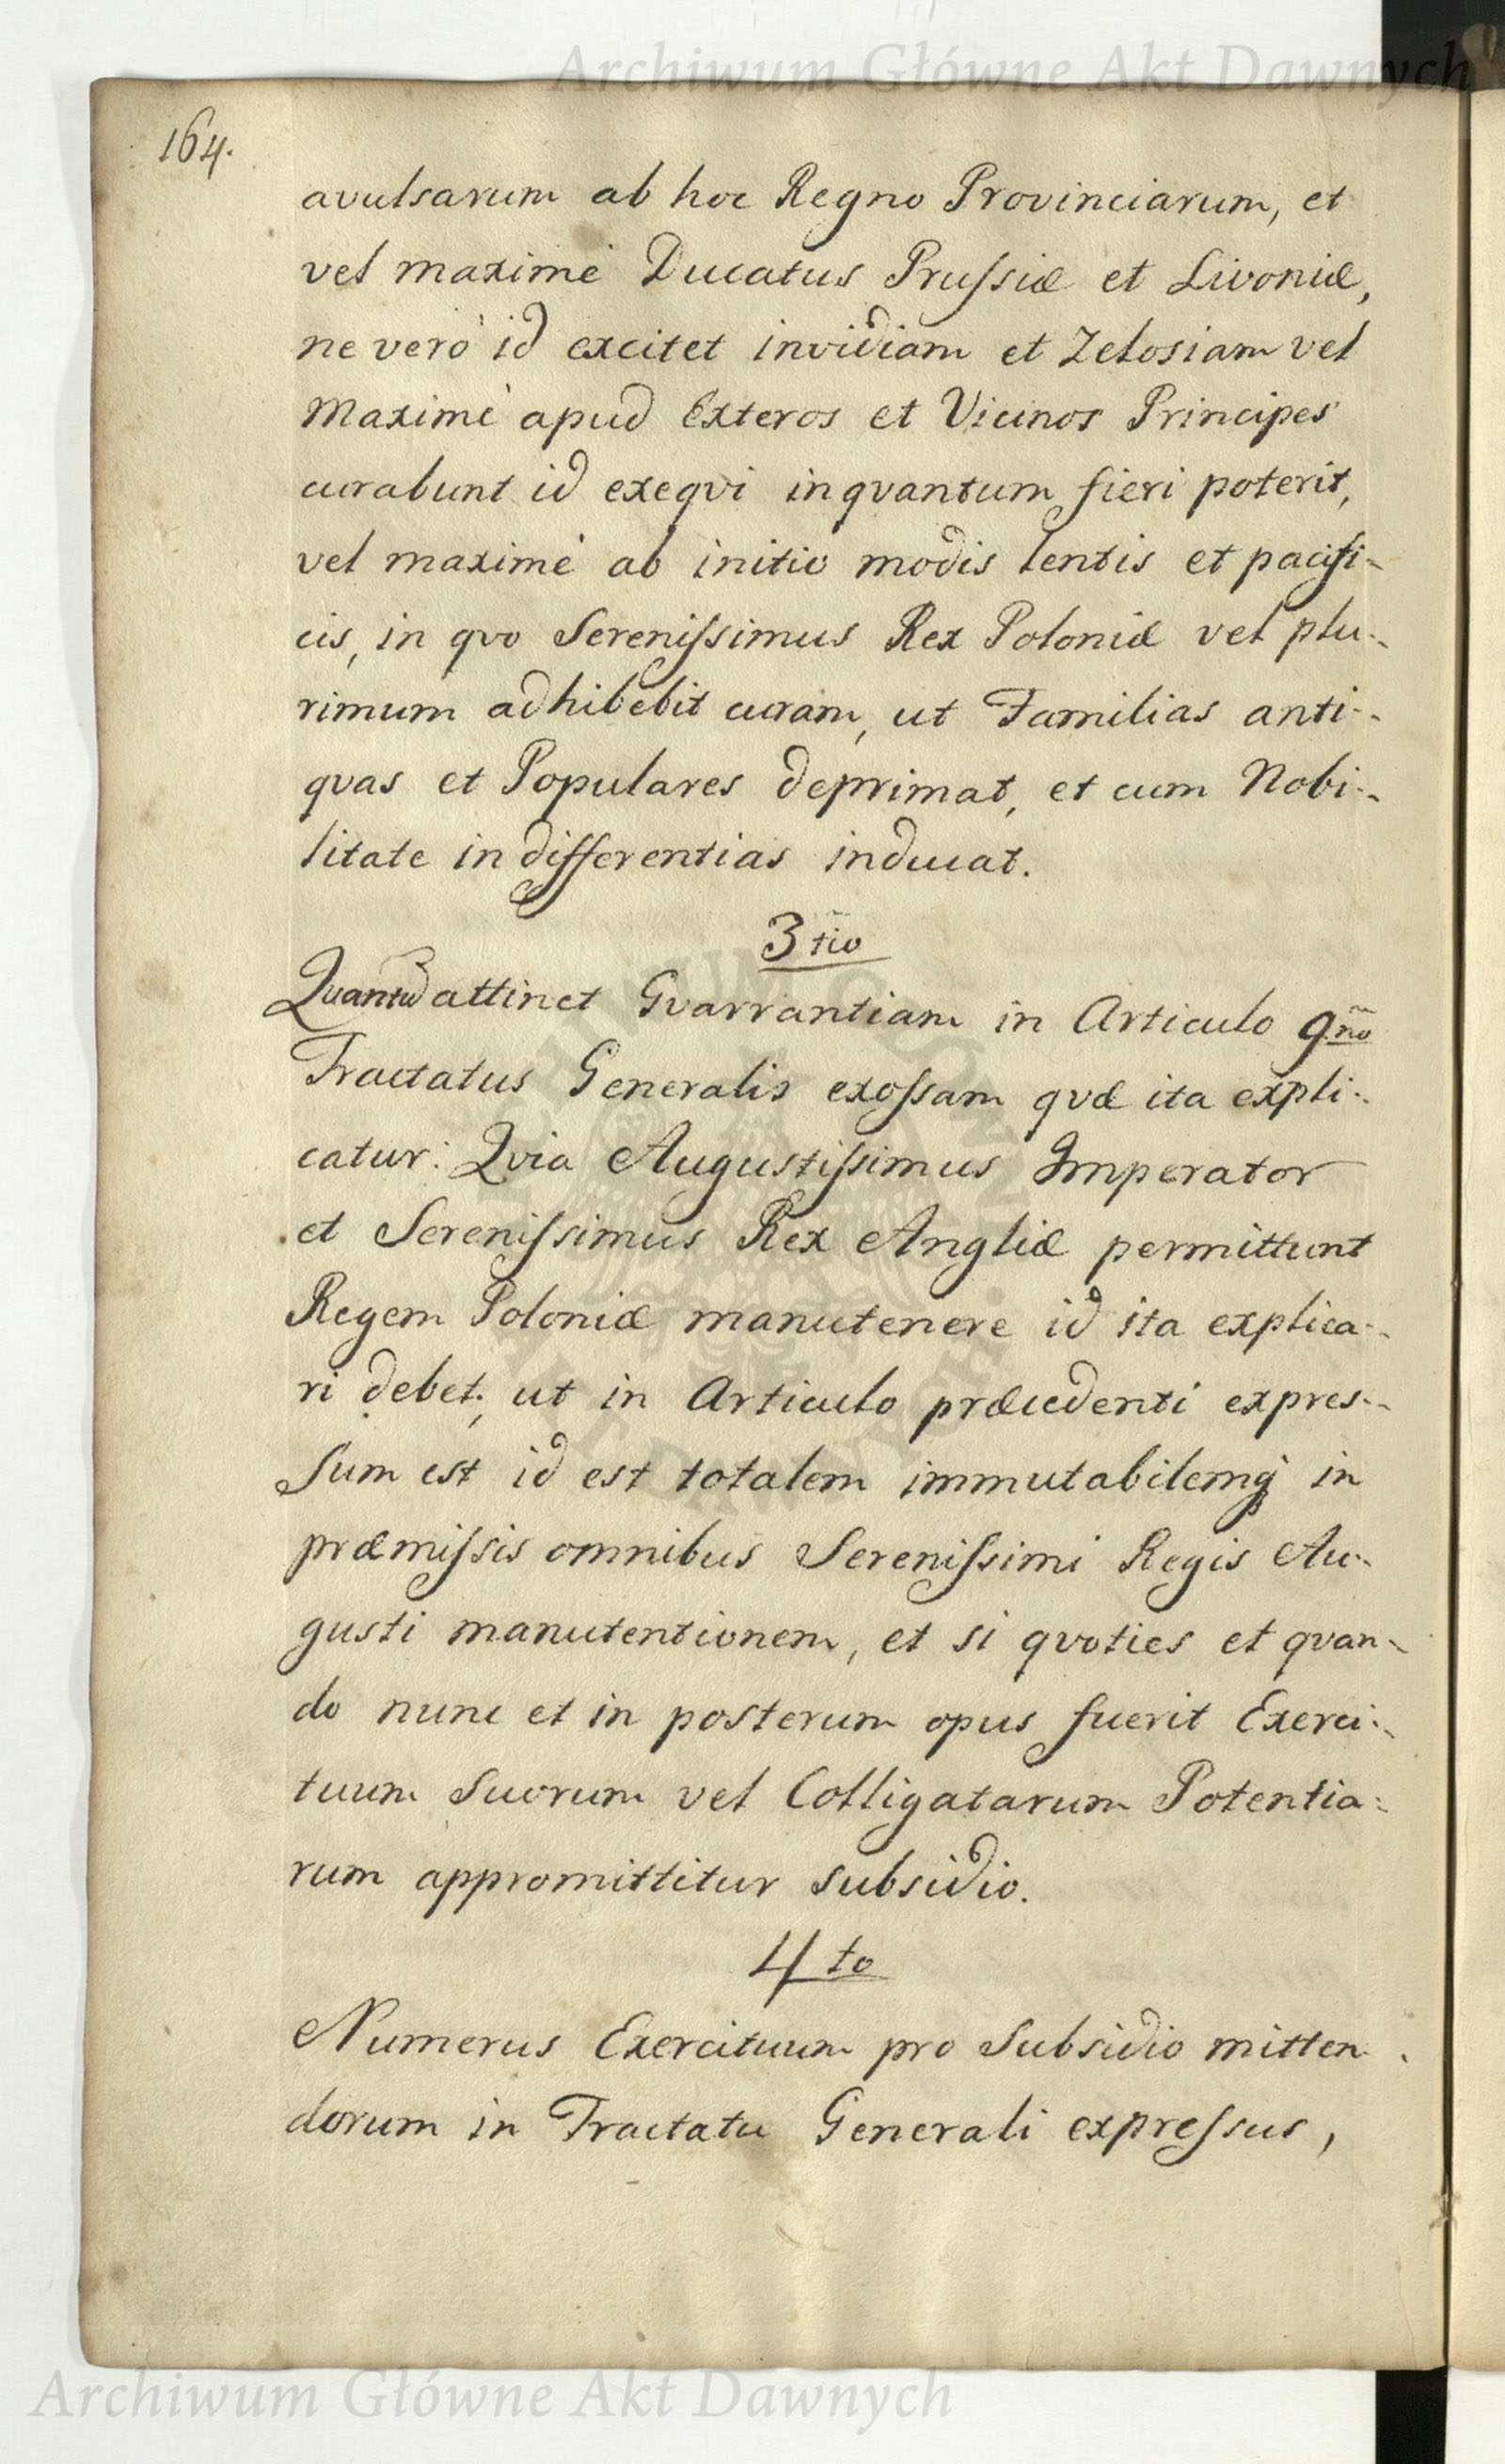 Archiwum Główne Akt Dawnych
164.
avulsarum ab hoc Regno Provinciarum, et
vel maximè Ducatus Prussiæ et Livoniæ,
ne verò id excitet invidiam et Zelosiam vel
Maximè apud Exteros et Vicinos Principes
curabunt id exeqvi inqvantum fieri poterit,
vel maximè ab initio modis lentis et pacifi-
cis, in qvo Serenissimus Rex Poloniæ vel plu-
rimum adhibebit curam, ut Familias anti-
qvas et Populares deprimat, et cum Nobi-
litate in differentias inducat.
3tio
Quantũ attinet Gvarrantiam in Articulo 9no
Tractatus Generalis exossam qvæ ita expli-
catur: Qvia Augustissimus Imperator
et Serenissimus Rex Angliæ permittunt
Regem Poloniæ manutenere id ita explica-
ri debet; ut in Articulo præcedenti expres-
sum est id est totalem immutabilemq in
præmissis omnibus Serenissimi Regis Au-
gusti manutentionem, et si qvoties et qvan-
do nunc et in posterum opus fuerit Exerci-
tuum Suorum vel Colligatarum Potentia-
rum appromittitur subsidio.
4to
Numerus Exercituum pro Subsidio mitten-
dorum in Tractatu Generali expressus,
Archiwum Główne Akt Dawnych